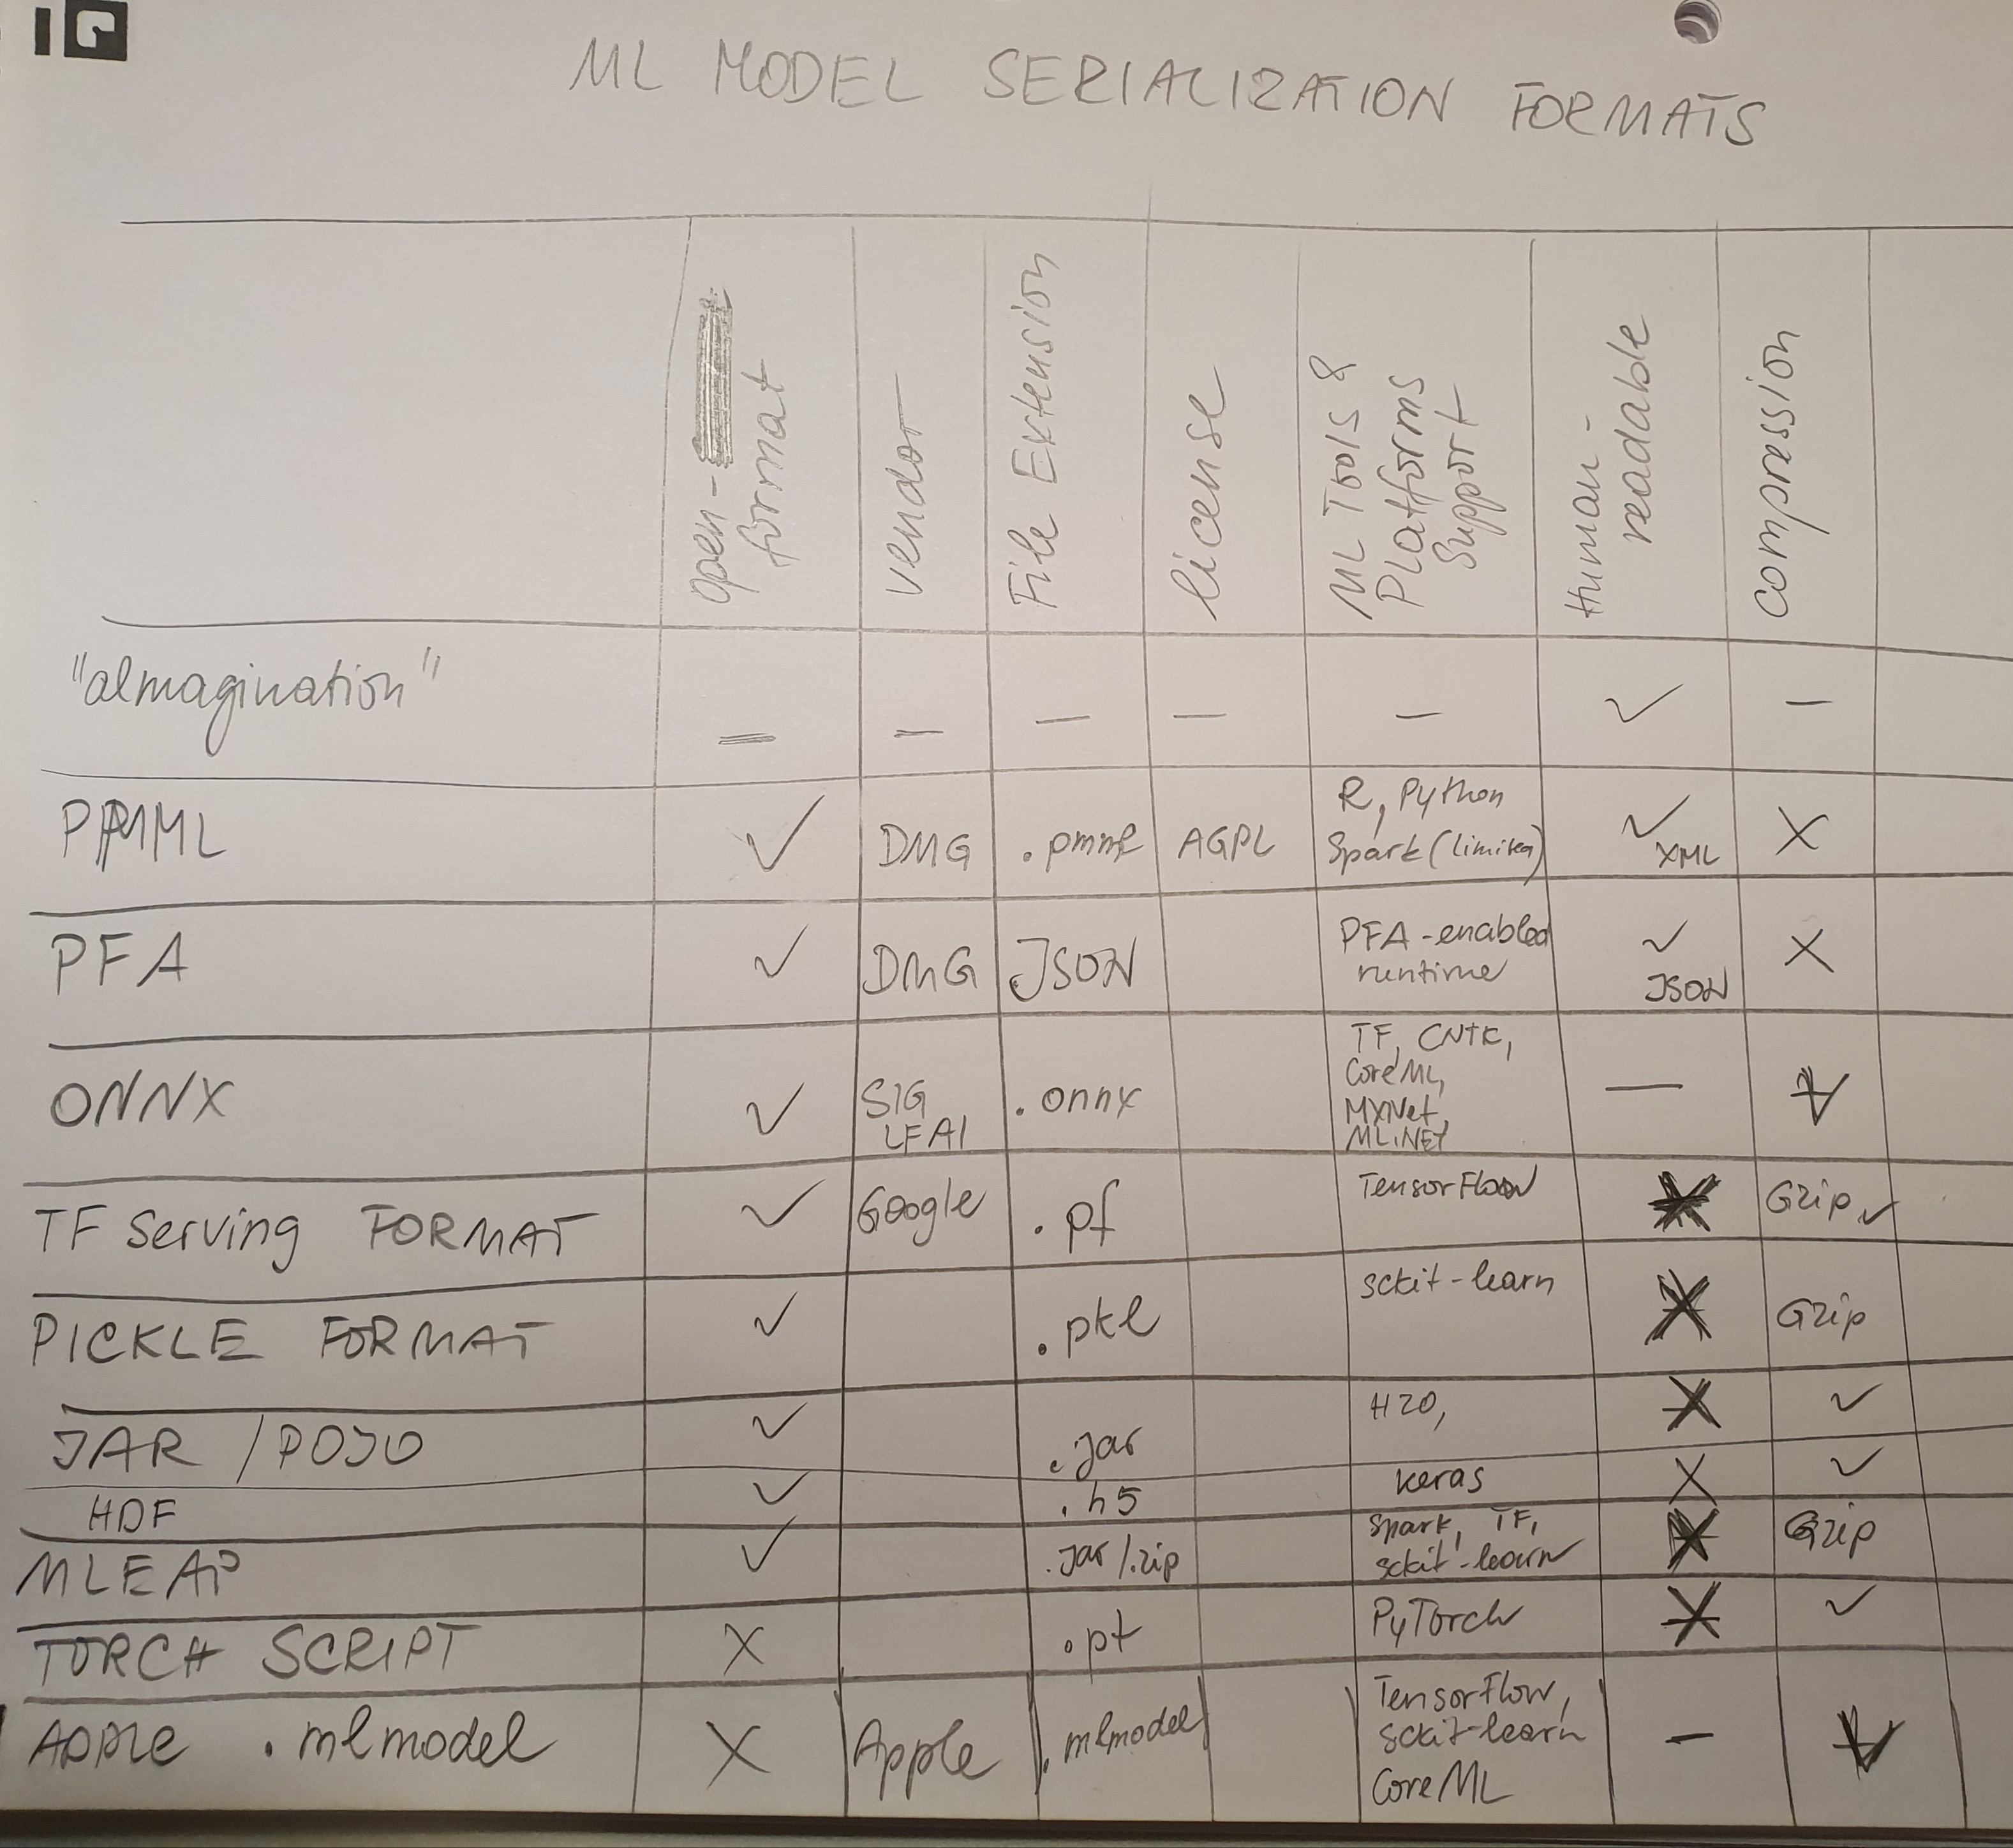 ML MODEL SERIALIZATION FORMATS
open-
format
vendor
File Extension
license
ML Tools &
Platforms
Support
Human-
readable
compression
"almagination"
— — — — — ✓ —
PMML ✓ DMG .pmml AGPL R, Python
Spark (limited) ✓
XML X
PFA ✓ DMG JSON PFA-enabled
runtime ✓
JSON X
ONNX ✓ SIG
LFAI .onnx TF, CNTK,
CoreML,
MXNet,
ML.NET — ✓
TF Serving FORMAT ✓ Google .pf TensorFlow X Gzip ✓
PICKLE FORMAT ✓ .pkl sckit-learn X Gzip
JAR / POJO ✓ .jar H2O, X ✓
HDF ✓ .h5 keras X ✓
MLEAP ✓ .jar/.zip Spark, TF,
sckit-learn X Gzip
TORCH SCRIPT X .pt PyTorch X ✓
APPLE .mlmodel X Apple .mlmodel TensorFlow,
sckit-learn
CoreML — ✓